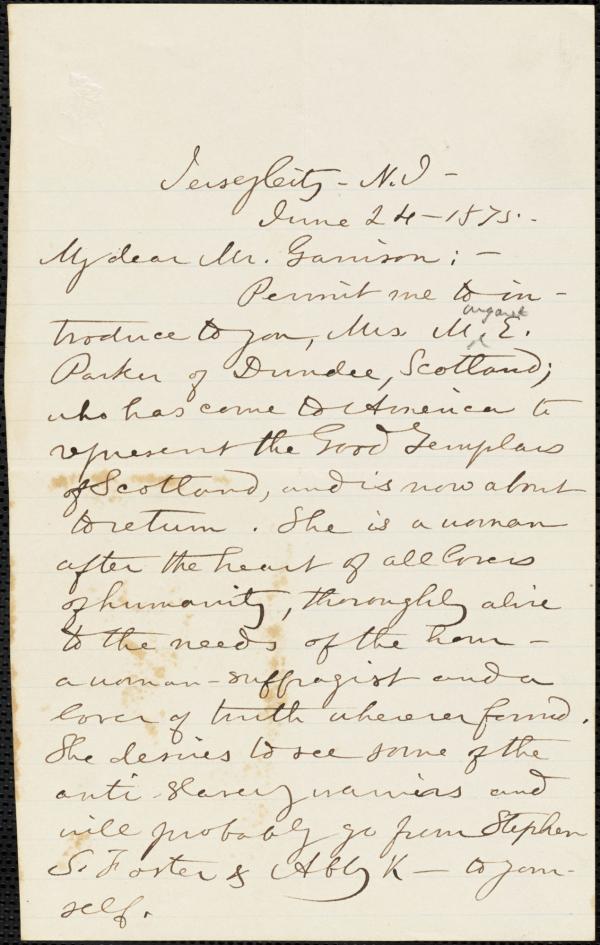 Jersey City - N.J -
June 24 - 1875.-
My dear Mr. Garrison: -
Permit me to in-
argaret
troduce to you, Mrs M. E.
Parker of Dundee, Scotland;
who has come to America to
represent the Good Templars
of Scotland, and is now about
to return. She is a woman
after the heart of all lovers
of humanity, thoroughly alive
to the needs of the hour -
a woman-suffragist and a
lover of truth wherever found.
She desires to see some of the
anti-slavery warriors and
will probably go from Stephen
S. Foster & Abby K - to your-
self.